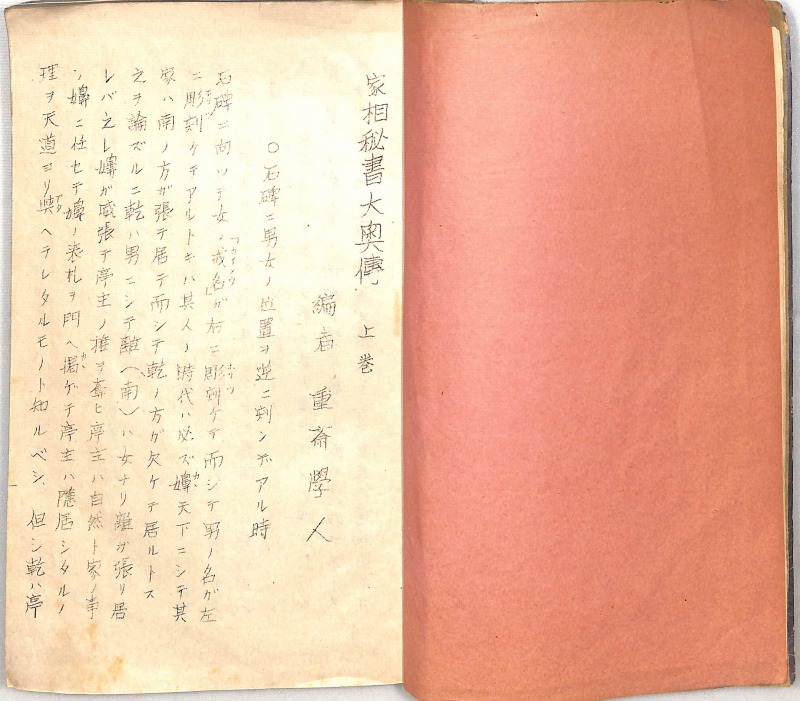 家相秘書大奥傳 上巻
編者 重斎學人
○石碑ニ男女ノ位置ヲ逆ニ刻シアル時
石碑ニ向ツテ女ノ戒名ガ右ニ彫刻ケテ而シテ男ノ名ガ左
ニ彫刻ケテアルトキハ其人ノ時代ハ必ズ嬶天下ニシテ其
家ハ南ノ方ガ張テ居テ而シテ乾ノ方ガ欠ケテ居ルトス
之ヲ論ズルニ乾ハ男ニシテ離(南)ハ女ナリ離ガ張リ居
レバ之レ嬶ガ威張テ亭主ノ権ヲ奪ヒ亭主ハ自然ト家ノ事
ヲ嬶ニ任セテ嬶ノ表札ヲ門ヘ掲ゲテ亭主ハ隠居シタルノ
理ヲ天道ヨリ與ヘテレタルモノト知ルベシ、但シ乾ハ亭